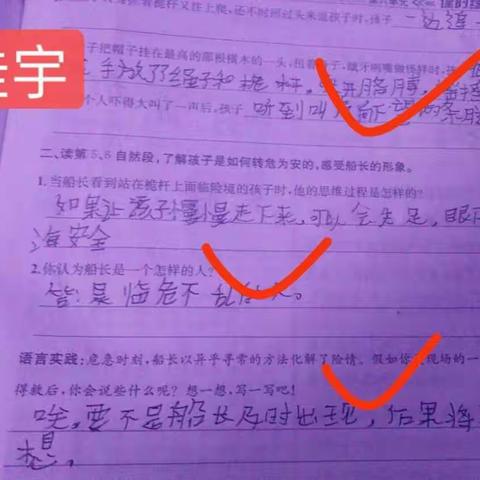 佳宇
看着桅杆又往上爬,还不时回过头来逗孩子时,孩子
子把帽子挂在最高的那根横木的一头,
手放了绳子和桅杆。
个人吓得大叫了一声后,孩子 听到叫
二、读第5、6自然段,了解孩子是如何转危为安的,感受船长的形象。
1.当船长看到站在桅杆上面临险境的孩子时,他的思维过程是怎样的?
如果让孩子慢慢走下来,可以会失足,眼下
海安全
2.你认为船长是一个怎样的人?
答:是临危不乱的人。
语言实践:危急时刻,船长以异乎寻常的方法化解了险情。假如你 现场的一
得救后,你会说些什么呢?想一想,写一写吧!
唉,要不是船长及时出现,后果将
想。